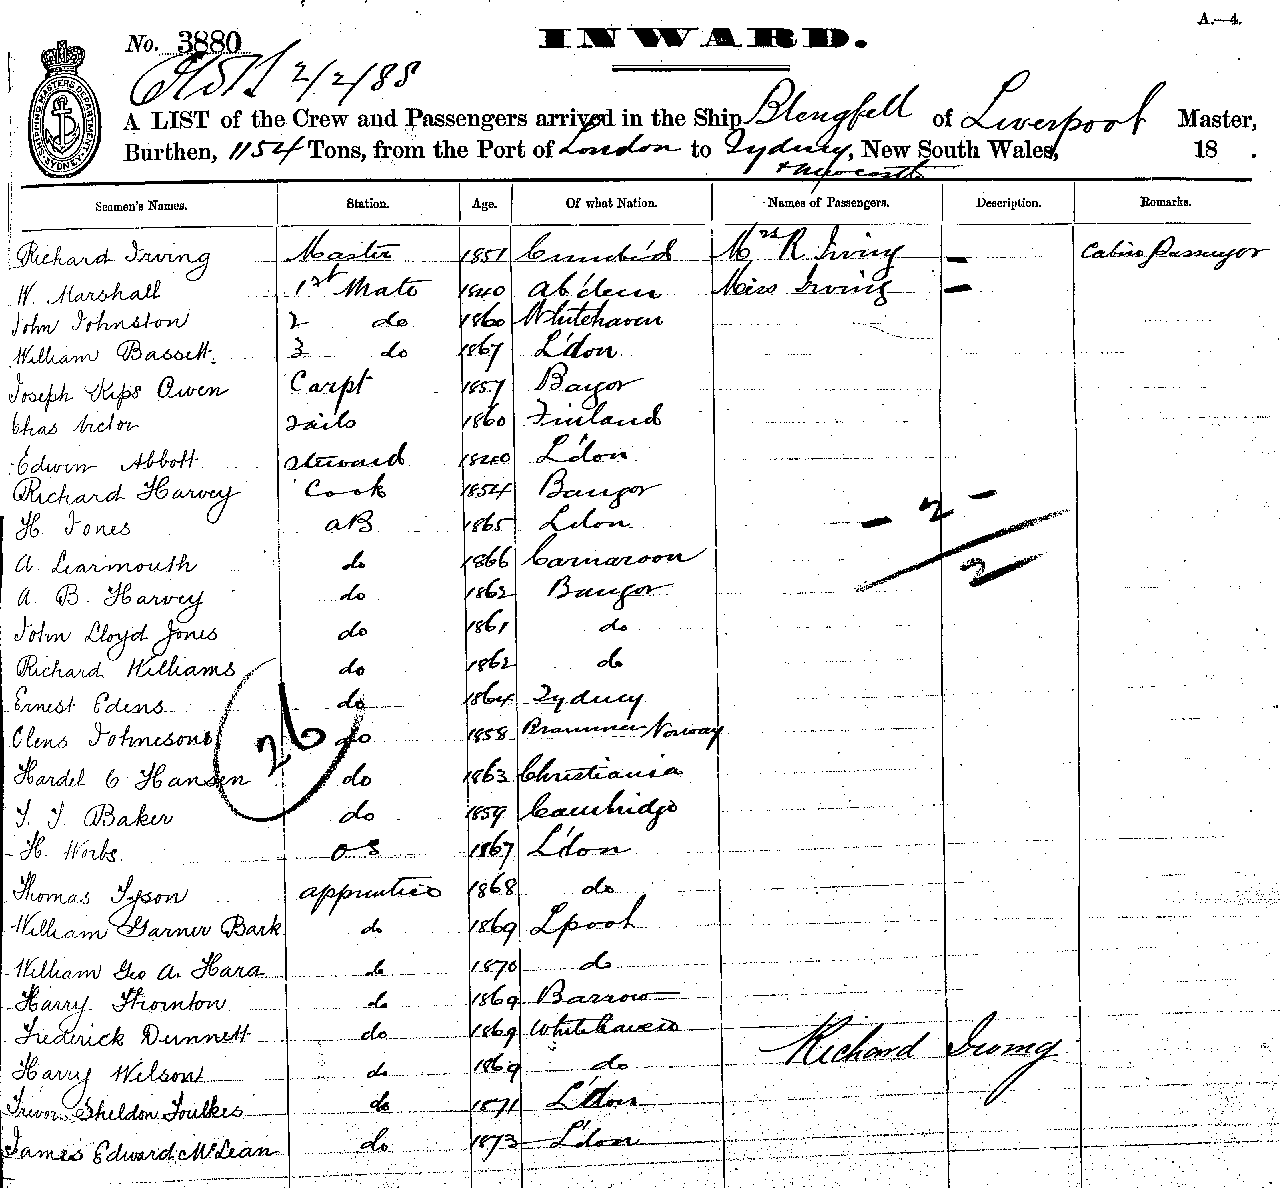 A.—4.
No. 3880
INWARD.
2/2/88
A LIST of the Crew and Passengers arrived in the Ship Blengfell of Liverpool Master,
Burthen, 1154 Tons, from the Port of London to Sydney, New South Wales, 18 .
+ Newcastle
Seamen's Names. Station. Age. Of what Nation. Names of Passengers. Description. Remarks.
Richard Irving Master 1851 Cumb'd Mrs R Irving — Cabin Passenger
W. Marshall 1st Mate 1840 Ab'deen Miss Irving —
John Johnston 2 do 1860 Whitehaven
William Bassett. 3 do 1867 L'don
Joseph Kips Owen Carpt 1857 Bangor
Chas Victor Sails 1860 Finland
Edwin Abbott Steward 1840 L'don
Richard Harvey Cook 1854 Bangor
H. Jones AB 1865 L'don
- 2 -
A. Learmouth do 1866 Carnaroon
2
A. B. Harvey do 1862 Bangor
John Lloyd Jones do 1861 do
Richard Williams do 1862 do
Ernest Edens do 1864 Sydney
26
Olens Johnesons do 1858 Norway
Hardel C Hansen do 1863 Christiania
T. J. Baker do 1859 Cambridge
H. Worbs OS 1867 L'don
Thomas Tyson apprentice 1868 do
William Garner Bark do 1869 Lpool
William Geo A. Hara do 1870 do
Harry Thornton do 1869 Barrow
Frederick Dunnett do 1869 Whitehaven
Richard Irving
Harry Wilson do 1869 do
Trevor Sheldon Foulkes do 1871 L'don
James Edward McLean do 1873 L'don